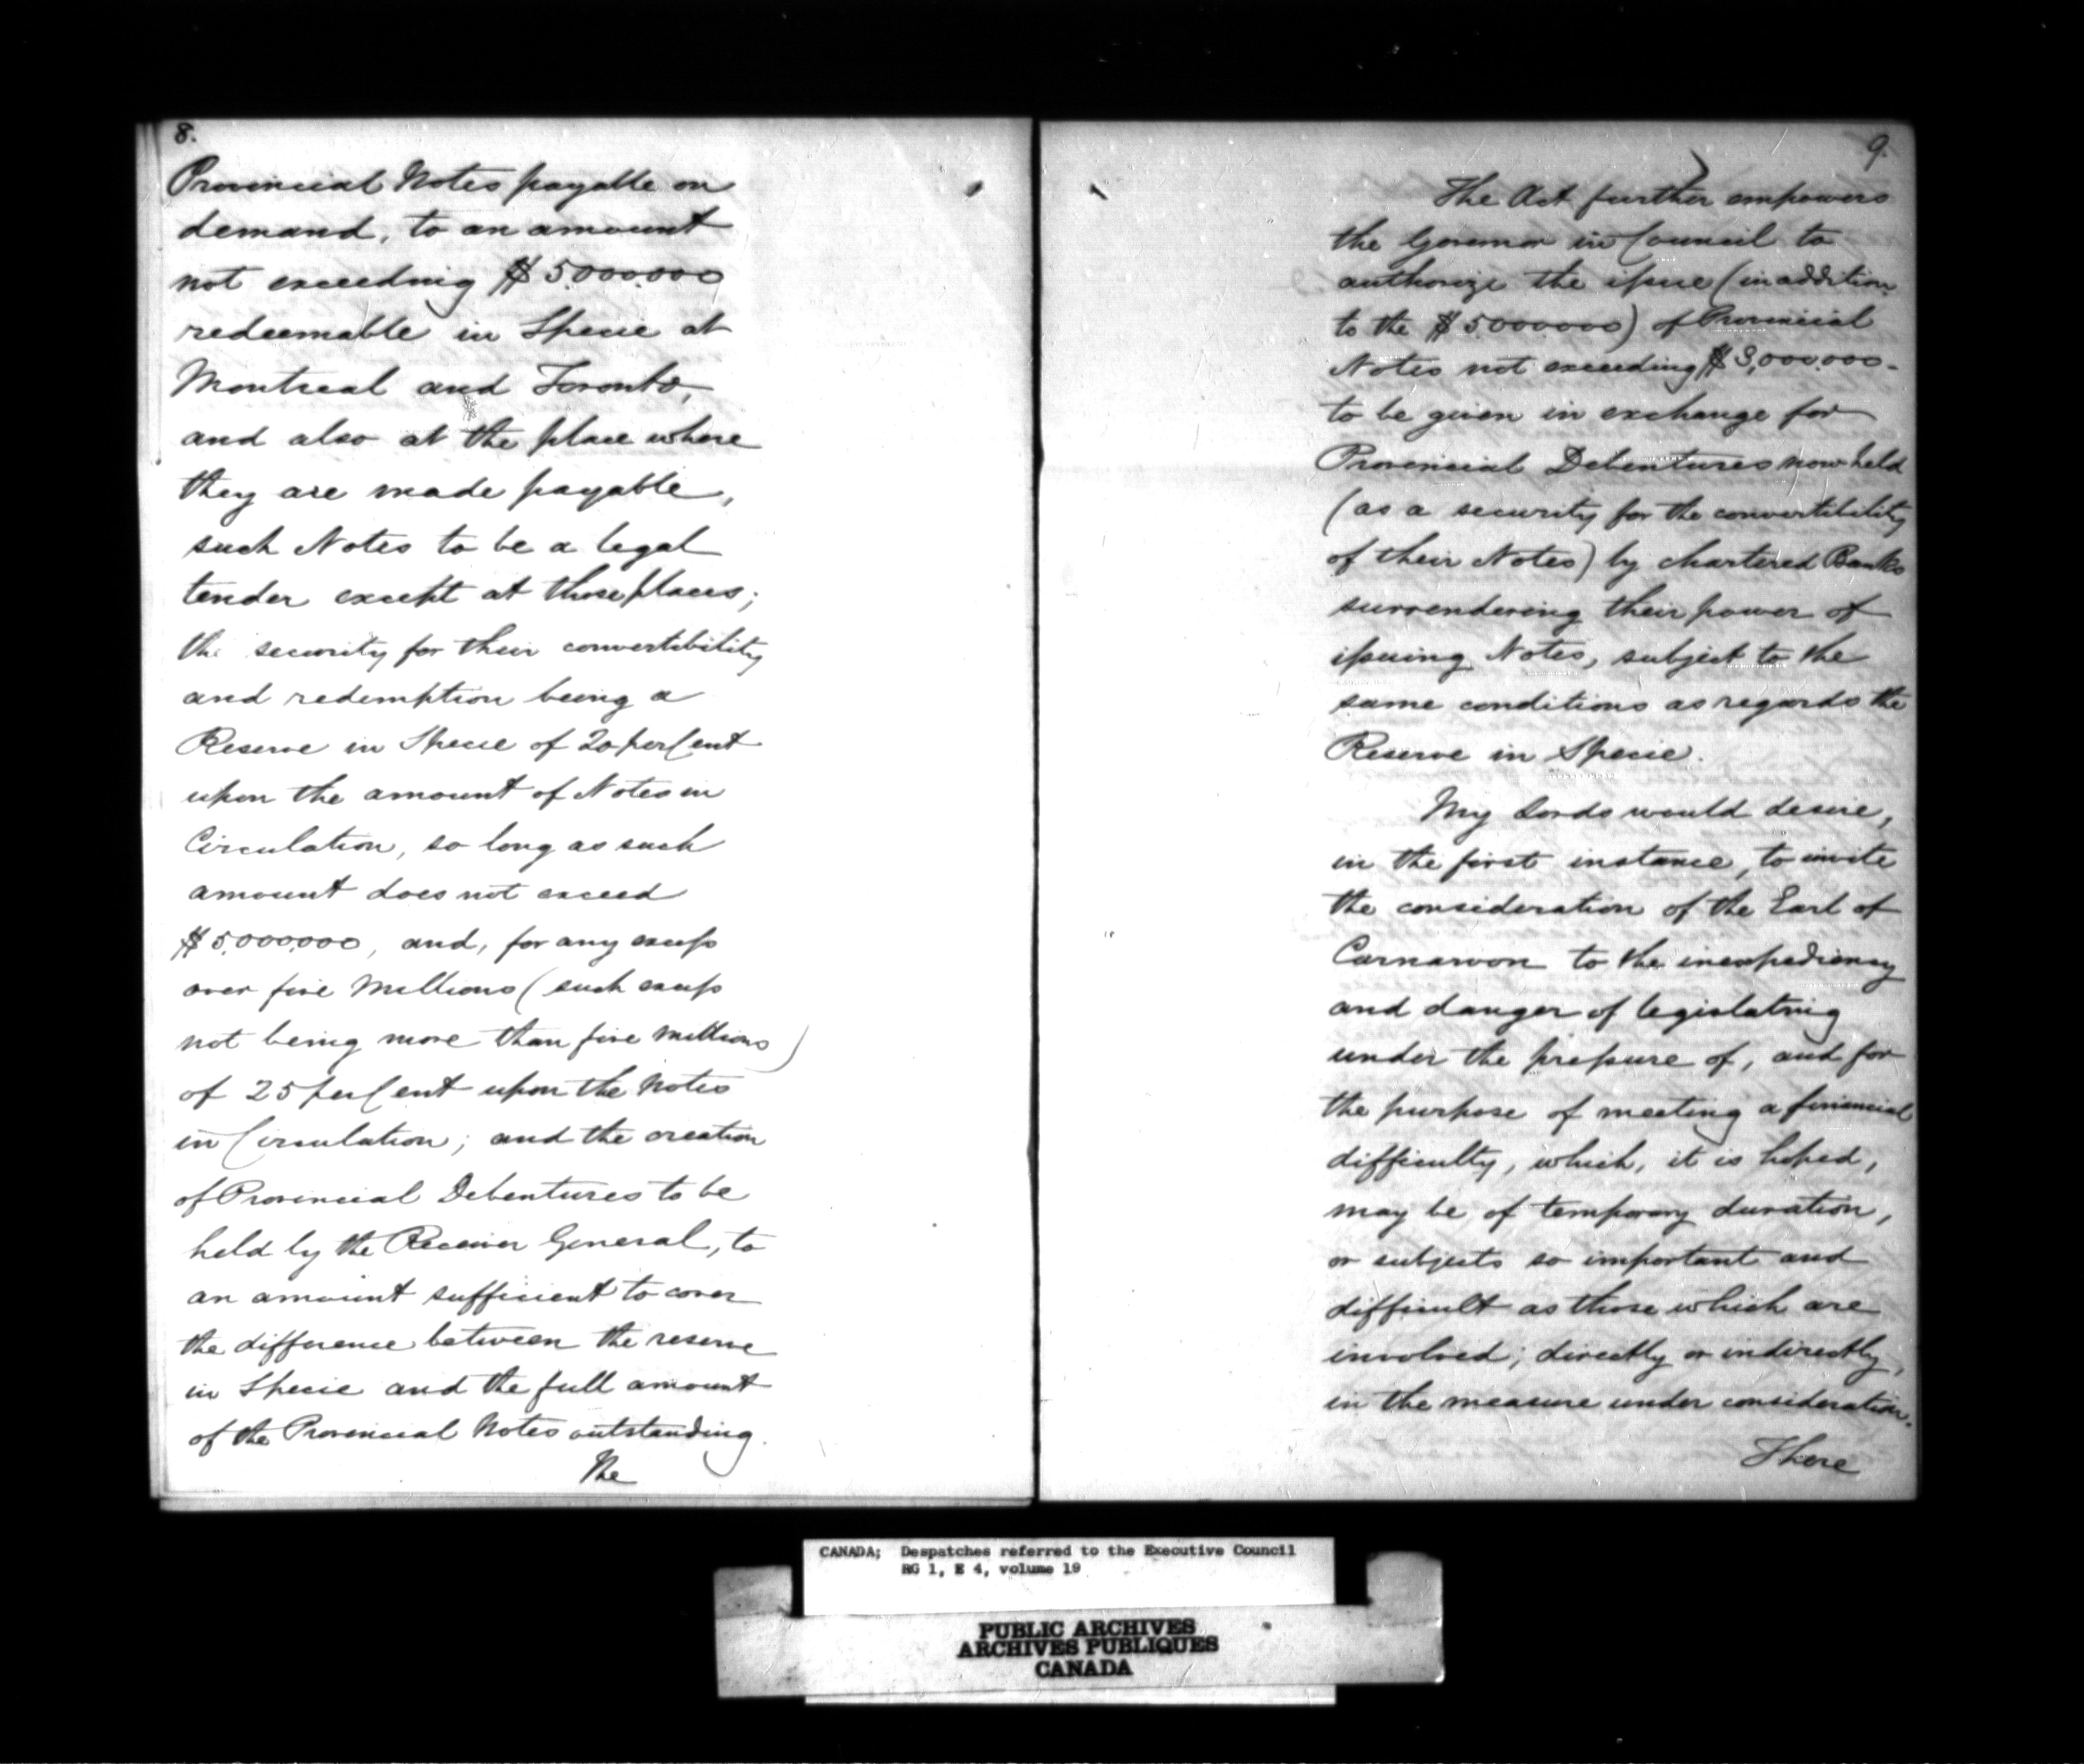 8.
Provincial Notes payable on
demand, to an amount
not exceeding $5.000.000
redeemable in Specie at
Montreal and Toronto,
and also at the place where
they are made payable,
such Notes to be a legal
tender except at those places;
the security for their convertibility
and redemption being a
Reserve in Specie of 20 per Cent
upon the amount of Notes in
Circulation, so long as such
amount does not exceed
$5.000.000, and, for any excess
over five Millions (such excess
not being more than five millions)
of 25 per Cent upon the Notes
in Circulation; and the creation
of Provincial Debentures to be
held by the Receiver General, to
an amount sufficient to cover
the difference between the reserve
in Specie and the full amount
of the Provincial Notes outstanding.
The
9.
The Act further empowers
the Governor in Council to
authorize the issue (in addition
to the $5000000) of Provincial
Notes not exceeding $3,000.000-
to be given in exchange for
Provincial Debentures now held
(as a security for the convertibility
of their Notes) by chartered Banks
surrendering their power of
issuing Notes, subject to the
same conditions as regards the
Reserve in Specie.
My Lords would desire,
in the first instance, to invite
the consideration of the Earl of
Carnarvon to the inexpediency
and danger of legislating
under the pressure of, and for
the purpose of meeting a financial
difficulty, which, it is hoped,
may be of temporary duration,
or subjects so important and
difficult as those which are
involved; directly or indirectly,
in the measure under consideration.
There
CANADA; Despatches referred to the Executive Council
RG 1, E 4, volume 19
PUBLIC ARCHIVES
ARCHIVES PUBLIQUES
CANADA